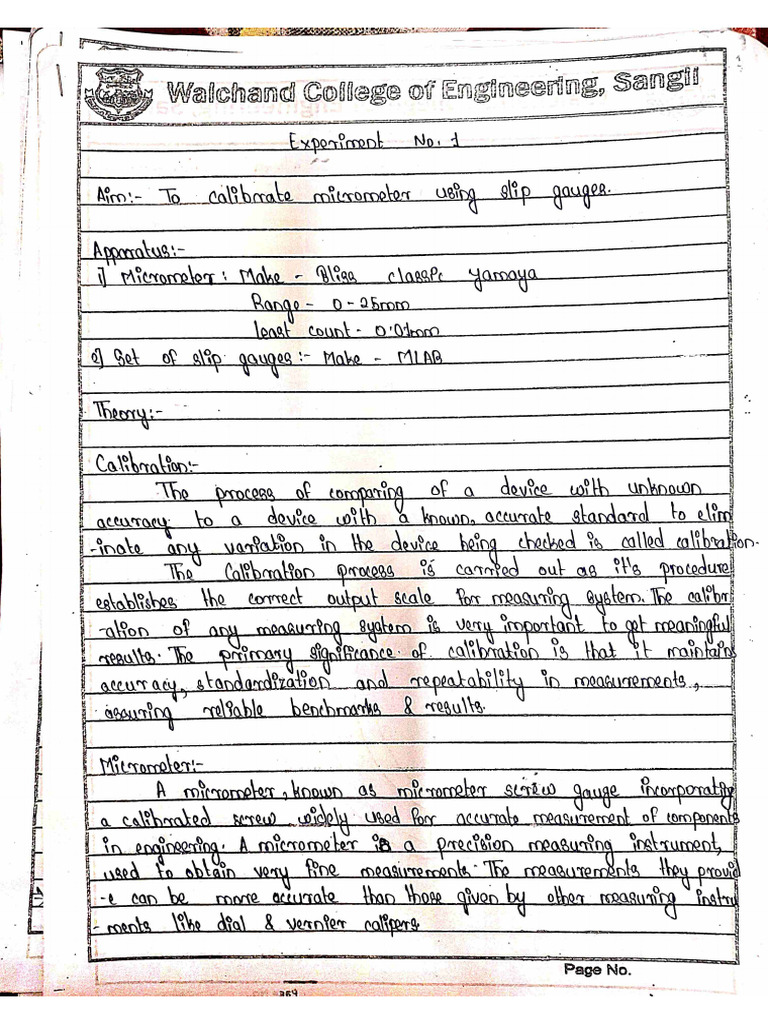 Walchand College of Engineering, Sangli
Experiment No. 1
Aim:- To calibrate micrometer using slip gauges.
Apparatus:-
1) Micrometer: Make - Bliss classic yamaya
Range - 0-25mm
least count - 0.01mm
2) Set of slip gauges:- Make - MLAB
Theory:-
Calibration:-
The process of comparing of a device with unknown
accuracy to a device with a known, accurate standard to elim
-inate any variation in the device being checked is called calibration.
The Calibration process is carried out as it's procedure
establishes the correct output scale for measuring system. The calibr
-ation of any measuring system is very important to get meaningful
results. The primary significance of calibration is that it maintains
accuracy, standardization and repeatability in measurements,
assuring reliable benchmarks & results.
Micrometer:-
A micrometer, known as micrometer screw gauge incorporating
a calibrated screw widely used for accurate measurement of components
in engineering. A micrometer is a precision measuring instrument,
used to obtain very fine measurements. The measurements they provid
-e can be more accurate than those given by other measuring instru
-ments like dial & vernier calipers.
Page No.